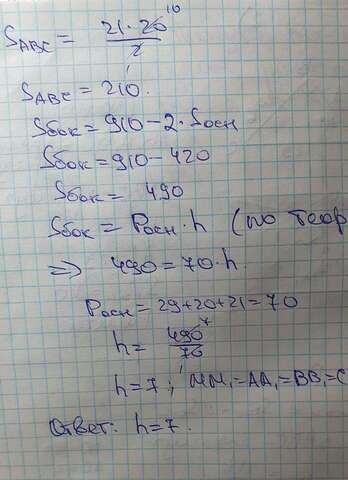 S_ABC = 21·20/2 10
S_ABC = 210.
Sбок = 910 - 2·Sосн
Sбок = 910 - 420
Sбок = 490
Sбок = Pосн·h (по теор
=> 490 = 70·h.
Pосн = 29+20+21 = 70
h = 490/70 7
h = 7; MM₁=AA₁=BB₁=C
Ответ: h = 7.